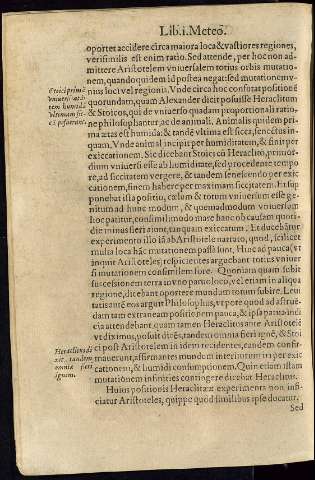 Lib. i. Meteō.
oportet accidere circa maiora loca & vastiores regiones,
verisimilis est enim ratio. Sed attende, per hoc non ad-
mittere Aristotelem vniuersalem totius orbis mutatio-
nem, quandoquidem id postea negat: sed mutationem v-
nius loci vel regionis. Vnde circa hoc confutat positionē
quorundam, quam Alexander dicit posuisse Heraclitum
& Stoicos, qui de vniuerso quadam proportionali ratio-
ne philosophantur ac de animali. Animalis quidem pri-
ma ætas est humida: & tandē vltima est sicca, senectus in-
quam, Vnde animal incipit per humiditatem, & finit per
exiccationem. Sic dicebant Stoici cū Heraclito, primor-
dium vniuersi esse ab humiditate, sed procedente tempo
re, ad siccitatem vergere, & tandem senescendo per exic
cationem, finem habere per maximam siccitatem. Et sup
ponebat ista positio, cœlum & totum vniuersum esse ge-
nitum ad hunc modum, & quemadmodum vniuersum
hoc patitur, consimili modo mare hanc ob causam quoti-
die minus fieri aiunt, tanquam exiccatum. Et deducebāt
experimento illo iā ab Aristotele narrato, quod, scilicet
multa loca hāc mutationem passa sunt. Huc ad pauca (vt
inquit Aristoteles) respicientes arguebant totius vniuer
si mutationem consimilem fore. Quoniam quam subit
successionem terra in vno paruo loco, vel etiam in aliqua
regione, dicebant oportere mundum totum subire. Leui
tatis autē eos arguit Philosophus, vt pote quod ad astruē
dam tam extraneam positionem pauca, & ipsa paruo indi
cia attendebant. quam tamen Heraclitus ante Aristotelē
vt diximus, posuit dicēs, tandem omnia fieri ignē, & Stoi
ci post Aristotelem in idem recidentes, eandem confir-
mauerunt, affirmantes mundum interiturum iri per exic
cationem, & humidi consumptionem. Quin etiam istam
mutationem infinities contingere dicebat Heraclitus.
Huius positionis Heraclitæ experimenta non infi-
ciatur Aristoteles, quippe quod similibus ipse ducatur.
Sed
Stoici primā
vniuersi æta
tem humidā
vltimam sic
cā posuerunt.
Heraclitus di
xit tandem
omnia fieri
ignem.